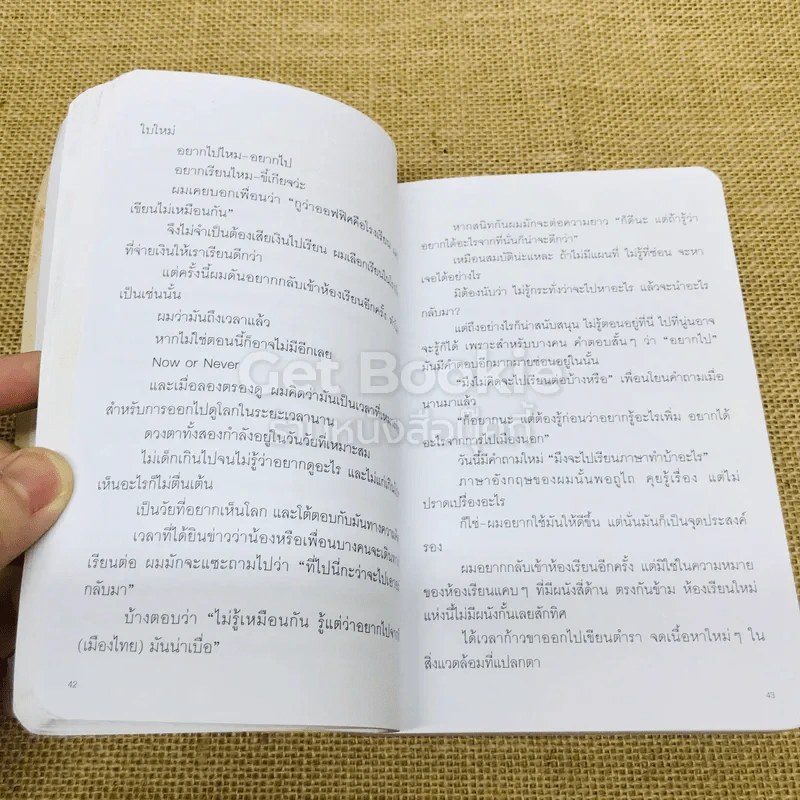 ใบใหม่
อยากไปไหม-อยากไป
อยากเรียนไหม-ขี้เกียจว่ะ
ผมเคยบอกเพื่อนว่า “กูว่าออฟฟิคคือโรงเรียน
เขียนไม่เหมือนกัน”
จึงไม่จำเป็นต้องเสียเงินไปเรียน ผมเลือกเรียนใน
ที่จ่ายเงินให้เราเรียนดีกว่า
แต่ครั้งนี้ผมดันอยากกลับเข้าห้องเรียนอีกครั้ง
เป็นเช่นนั้น
ผมว่ามันถึงเวลาแล้ว
หากไม่ใช่ตอนนี้ก็อาจไม่มีอีกเลย
Now or Never
และเมื่อลองตรองดู ผมคิดว่ามันเป็นเวลาที่
สำหรับการออกไปดูโลกในระยะเวลานาน
ดวงตาทั้งสองกำลังอยู่ในวันวัยที่เหมาะสม
ไม่เด็กเกินไปจนไม่รู้ว่าอยากดูอะไร และไม่แก่เกิน
เห็นอะไรก็ไม่ตื่นเต้น
เป็นวัยที่อยากเห็นโลก และโต้ตอบกับมันทางความ
เวลาที่ได้ยินข่าวว่าน้องหรือเพื่อนบางคนจะเดินทาง
เรียนต่อ ผมมักจะแซะถามไปว่า “ที่ไปนี่กะว่าจะไปเอา
กลับมา”
บ้างตอบว่า “ไม่รู้เหมือนกัน รู้แต่ว่าอยากไปจาก
(เมืองไทย) มันน่าเบื่อ”
42
หากสนิทกันผมมักจะต่อความยาว “ก็ดีนะ แต่ถ้ารู้ว่า
อยากได้อะไรจากที่นั่นก็น่าจะดีกว่า”
เหมือนสมบัตินั่นแหละ ถ้าไม่มีแผนที่ ไม่รู้ที่ซ่อน จะหา
เจอได้อย่างไร
มิต้องนับว่า ไม่รู้กระทั่งว่าจะไปหาอะไร แล้วจะนำอะไร
กลับมา?
แต่ถึงอย่างไรก็น่าสนับสนุน ไม่รู้ตอนอยู่ที่นี่ ไปที่นู่นอาจ
จะรู้ก็ได้ เพราะสำหรับบางคน คำตอบสั้นๆ ว่า “อยากไป”
มันมีคำตอบอีกมากมายซ่อนอยู่ในนั้น
“มึงไม่คิดจะไปเรียนต่อบ้างหรือ” เพื่อนโยนคำถามเมื่อ
นานมาแล้ว
“ก็อยากนะ แต่ต้องรู้ก่อนว่าอยากรู้อะไรเพิ่ม อยากได้
อะไรจากการไปเมืองนอก”
วันนี้มีคำถามใหม่ “มึงจะไปเรียนภาษาทำบ้าอะไร”
ภาษาอังกฤษของผมนั้นพอถูไถ คุยรู้เรื่อง แต่ไม่
ปราดเปรื่องอะไร
ก็ใช่-ผมอยากใช้มันให้ดีขึ้น แต่นั่นมันก็เป็นจุดประสงค์
รอง
ผมอยากกลับเข้าห้องเรียนอีกครั้ง แต่มิใช่ในความหมาย
ของห้องเรียนแคบๆ ที่มีผนังสี่ด้าน ตรงกันข้าม ห้องเรียนใหม่
แห่งนี้ไม่มีผนังกั้นเลยสักทิศ
ได้เวลาก้าวขาออกไปเขียนตำรา จดเนื้อหาใหม่ๆ ใน
สิ่งแวดล้อมที่แปลกตา
43
Get Bookie
ร้านหนังสือเก็ตบุ๊คกี้